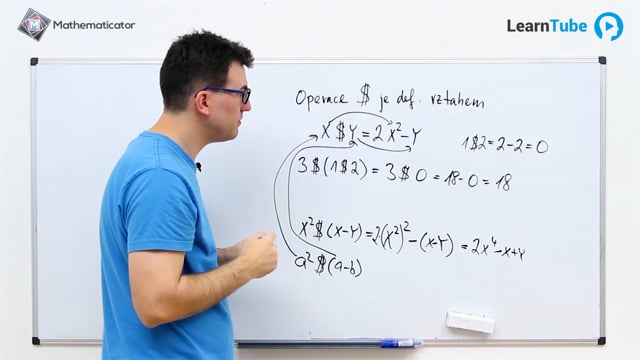 Mathematicator
LearnTube
Operace $ je def. vztahem
X $ Y = 2X²-Y
1$2 = 2-2 = 0
3$(1$2) = 3$0 = 18-0 = 18
X²$(X-Y) = 2(X²)² - (X-Y) = 2X⁴-X+Y
a²$(a-b)